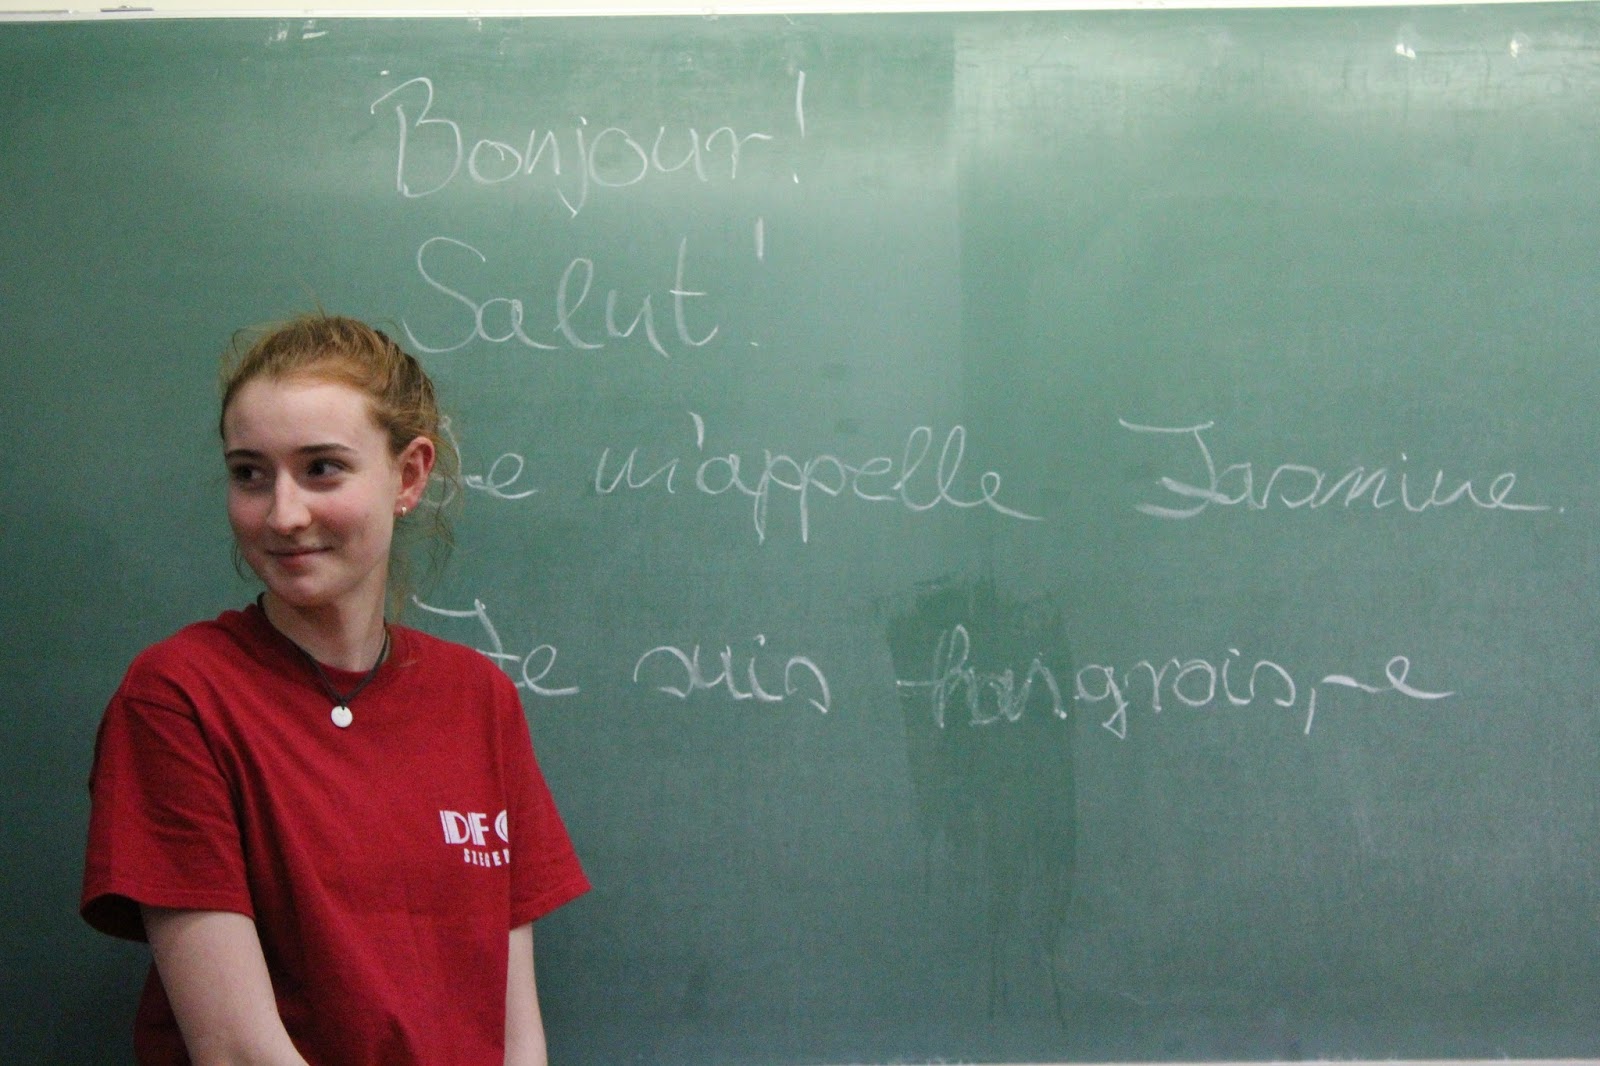 Bonjour!
Salut!
Je m'appelle Jasmine.
Je suis hongrois,-e
DF